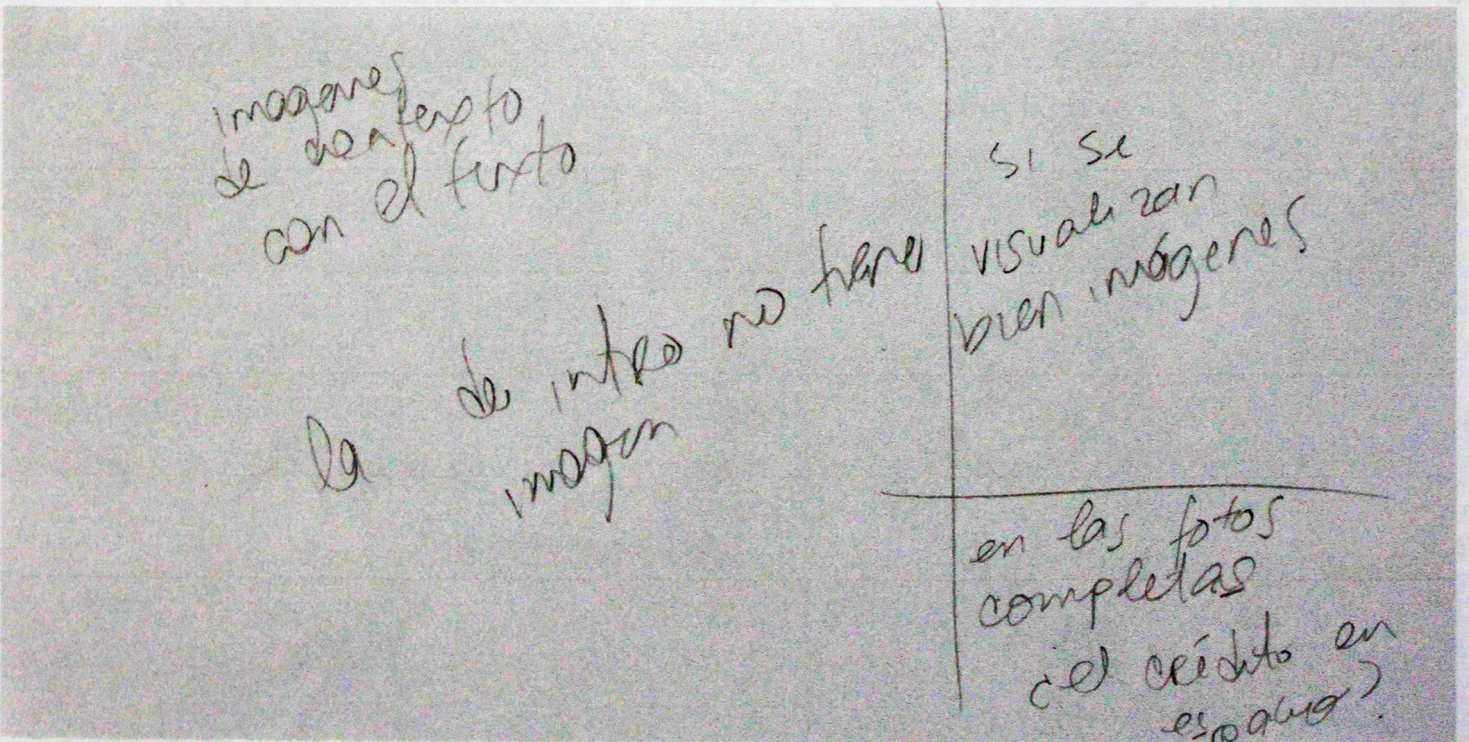 imagenes
de contexto
con el texto
la de intro no tiene
imagen
si se
visualizan
bien imágenes
en las fotos
completas
¿el crédito en